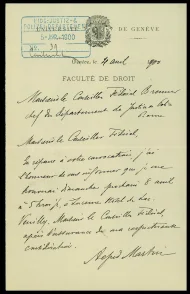 EIDG. JUSTIZ- &
5-AVR-1900
No. 39
DE GENÈVE
Genève, le 4 avril 1900
FACULTÉ DE DROIT
Monsieur le Conseiller Fédéral Brenner
chef du Département de Justice et Police
Berne
Monsieur le Conseiller Fédéral,
En réponse à votre convocation, j'ai
l'honneur de vous informer que je me
trouverai dimanche prochain 8 avril
à 5 h à Lucerne Hôtel du Lac.
Veuillez, Monsieur le Conseiller Fédéral,
agréer l'assurance de ma respectueuse
considération.
Alfred Martin